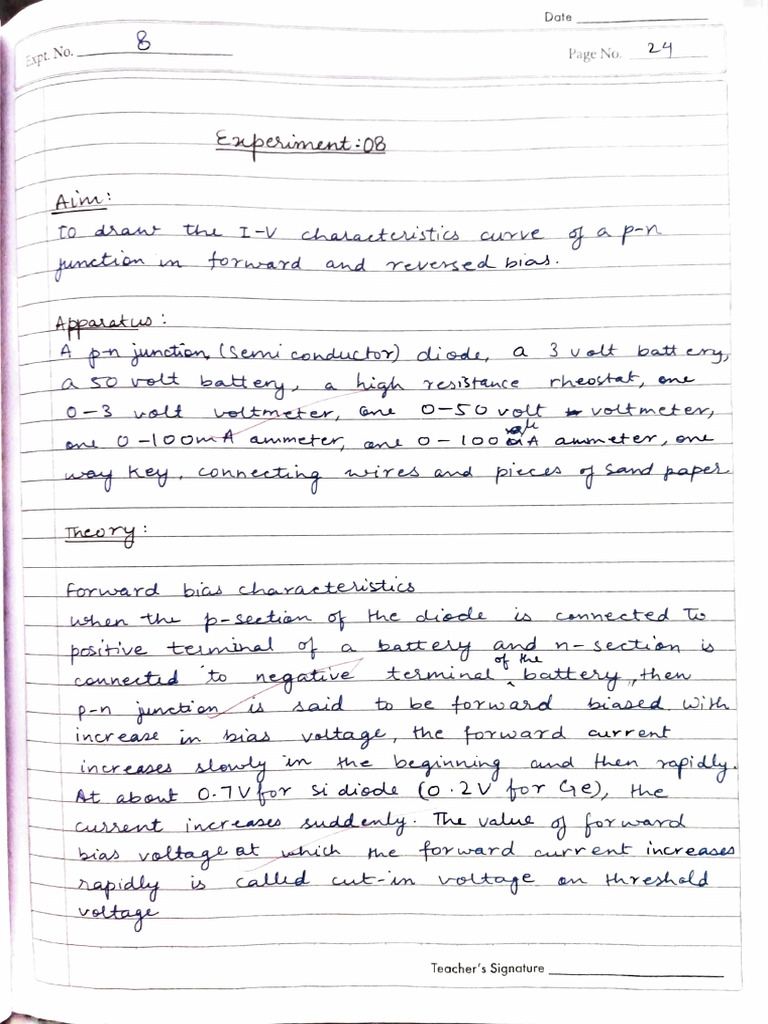 Date
Expt. No. 8
Page No. 24
Experiment:08
Aim:
To draw the I-V characteristics curve of a p-n
junction in forward and reversed bias.
Apparatus:
A p-n junction (semiconductor) diode, a 3 volt battery,
a 50 volt battery, a high resistance rheostat, one
0-3 volt voltmeter, one 0-50 volt voltmeter,
one 0-100mA ammeter, one 0-100 A ammeter, one
way key, connecting wires and pieces of sand paper
Theory:
Forward bias characteristics
when the p-section of the diode is connected to
positive terminal of a battery and n-section is
connected to negative terminal of the battery, then
p-n junction is said to be forward biased. With
increase in bias voltage, the forward current
increases slowly in the beginning and then rapidly.
At about 0.7V for Si diode (0.2V for Ge), the
current increases suddenly. The value of forward
bias voltage at which the forward current increases
rapidly is called cut-in voltage on threshold
voltage
Teacher's Signature